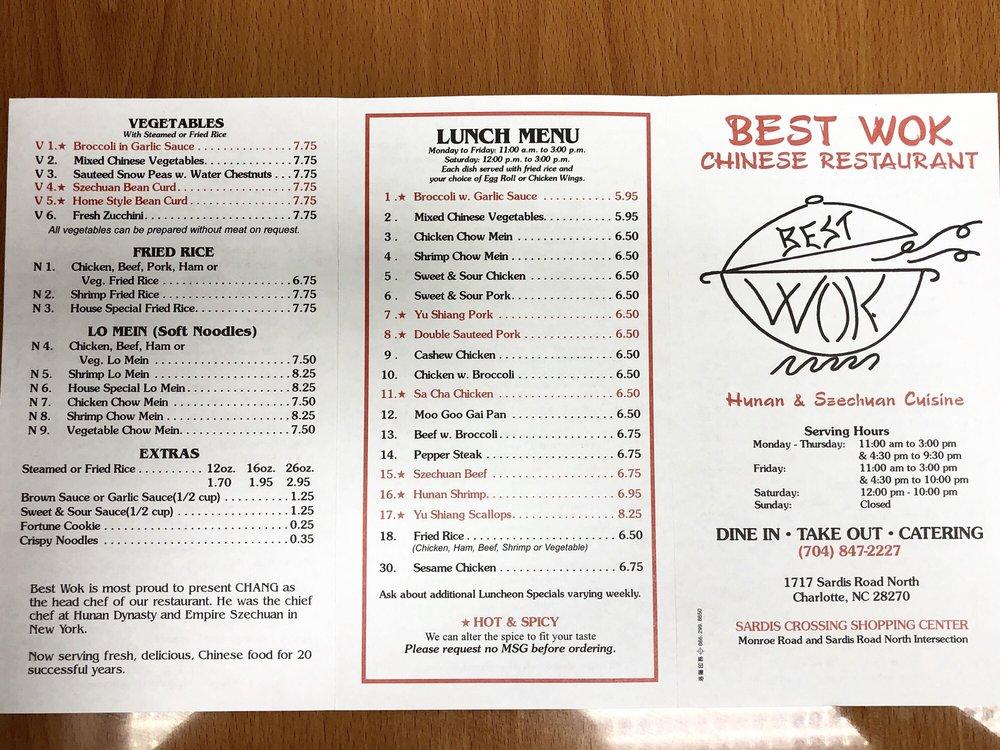 VEGETABLES
With Steamed or Fried Rice
V 1.★ Broccoli in Garlic Sauce . . . . . . . . . . . . . . . 7.75
V 2. Mixed Chinese Vegetables. . . . . . . . . . . . . . 7.75
V 3. Sauteed Snow Peas w. Water Chestnuts . . . 7.75
V 4.★ Szechuan Bean Curd. . . . . . . . . . . . . . . . . . 7.75
V 5.★ Home Style Bean Curd . . . . . . . . . . . . . . . . 7.75
V 6. Fresh Zucchini . . . . . . . . . . . . . . . . . . . . . . 7.75
All vegetables can be prepared without meat on request.
FRIED RICE
N 1. Chicken, Beef, Pork, Ham or
Veg. Fried Rice . . . . . . . . . . . . . . . . . . . . 6.75
N 2. Shrimp Fried Rice . . . . . . . . . . . . . . . . . . . . 7.75
N 3. House Special Fried Rice. . . . . . . . . . . . . . . 7.75
LO MEIN (Soft Noodles)
N 4. Chicken, Beef, Ham or
Veg. Lo Mein . . . . . . . . . . . . . . . . . . . . . 7.50
N 5. Shrimp Lo Mein . . . . . . . . . . . . . . . . . . . . . 8.25
N 6. House Special Lo Mein. . . . . . . . . . . . . . . . 8.25
N 7. Chicken Chow Mein . . . . . . . . . . . . . . . . . . 7.50
N 8. Shrimp Chow Mein . . . . . . . . . . . . . . . . . . . 8.25
N 9. Vegetable Chow Mein. . . . . . . . . . . . . . . . . 7.50
EXTRAS
Steamed or Fried Rice . . . . . . . . . . 12oz. 16oz. 26oz.
1.70 1.95 2.95
Brown Sauce or Garlic Sauce(1/2 cup) . . . . . . . . . . 1.25
Sweet & Sour Sauce(1/2 cup) . . . . . . . . . . . . . . . . . 1.25
Fortune Cookie . . . . . . . . . . . . . . . . . . . . . . . . . . . 0.25
Crispy Noodles . . . . . . . . . . . . . . . . . . . . . . . . . . . 0.35
Best Wok is most proud to present CHANG as
the head chef of our restaurant. He was the chief
chef at Hunan Dynasty and Empire Szechuan in
New York.
Now serving fresh, delicious, Chinese food for 20
successful years.
LUNCH MENU
Monday to Friday: 11:00 a.m. to 3:00 p.m.
Saturday: 12:00 p.m. to 3:00 p.m.
Each dish served with fried rice and
your choice of Egg Roll or Chicken Wings.
1 .★ Broccoli w. Garlic Sauce . . . . . . . . . . . . 5.95
2 . Mixed Chinese Vegetables. . . . . . . . . . . . 5.95
3 . Chicken Chow Mein . . . . . . . . . . . . . . . . 6.50
4 . Shrimp Chow Mein . . . . . . . . . . . . . . . . . 6.50
5 . Sweet & Sour Chicken . . . . . . . . . . . . . . 6.50
6 . Sweet & Sour Pork. . . . . . . . . . . . . . . . . 6.50
7 .★ Yu Shiang Pork . . . . . . . . . . . . . . . . . . . 6.50
8 .★ Double Sauteed Pork . . . . . . . . . . . . . . . 6.50
9 . Cashew Chicken . . . . . . . . . . . . . . . . . . . 6.50
10. Chicken w. Broccoli . . . . . . . . . . . . . . . . 6.50
11.★ Sa Cha Chicken . . . . . . . . . . . . . . . . . . . 6.50
12. Moo Goo Gai Pan . . . . . . . . . . . . . . . . . 6.50
13. Beef w. Broccoli. . . . . . . . . . . . . . . . . . . 6.75
14. Pepper Steak . . . . . . . . . . . . . . . . . . . . . 6.75
15.★ Szechuan Beef . . . . . . . . . . . . . . . . . . . . 6.75
16.★ Hunan Shrimp. . . . . . . . . . . . . . . . . . . . 6.95
17.★ Yu Shiang Scallops. . . . . . . . . . . . . . . . . 8.25
18. Fried Rice . . . . . . . . . . . . . . . . . . . . . . . 6.50
(Chicken, Ham, Beef, Shrimp or Vegetable)
30. Sesame Chicken . . . . . . . . . . . . . . . . . . . 6.75
Ask about additional Luncheon Specials varying weekly.
★ HOT & SPICY
We can alter the spice to fit your taste
Please request no MSG before ordering.
BEST WOK
CHINESE RESTAURANT
BEST
WOK
Hunan & Szechuan Cuisine
Serving Hours
Monday - Thursday: 11:00 am to 3:00 pm
& 4:30 pm to 9:30 pm
Friday: 11:00 am to 3:00 pm
& 4:30 pm to 10:00 pm
Saturday: 12:00 pm - 10:00 pm
Sunday: Closed
DINE IN • TAKE OUT • CATERING
(704) 847-2227
1717 Sardis Road North
Charlotte, NC 28270
SARDIS CROSSING SHOPPING CENTER
Monroe Road and Sardis Road North Intersection
866. 299. 8650